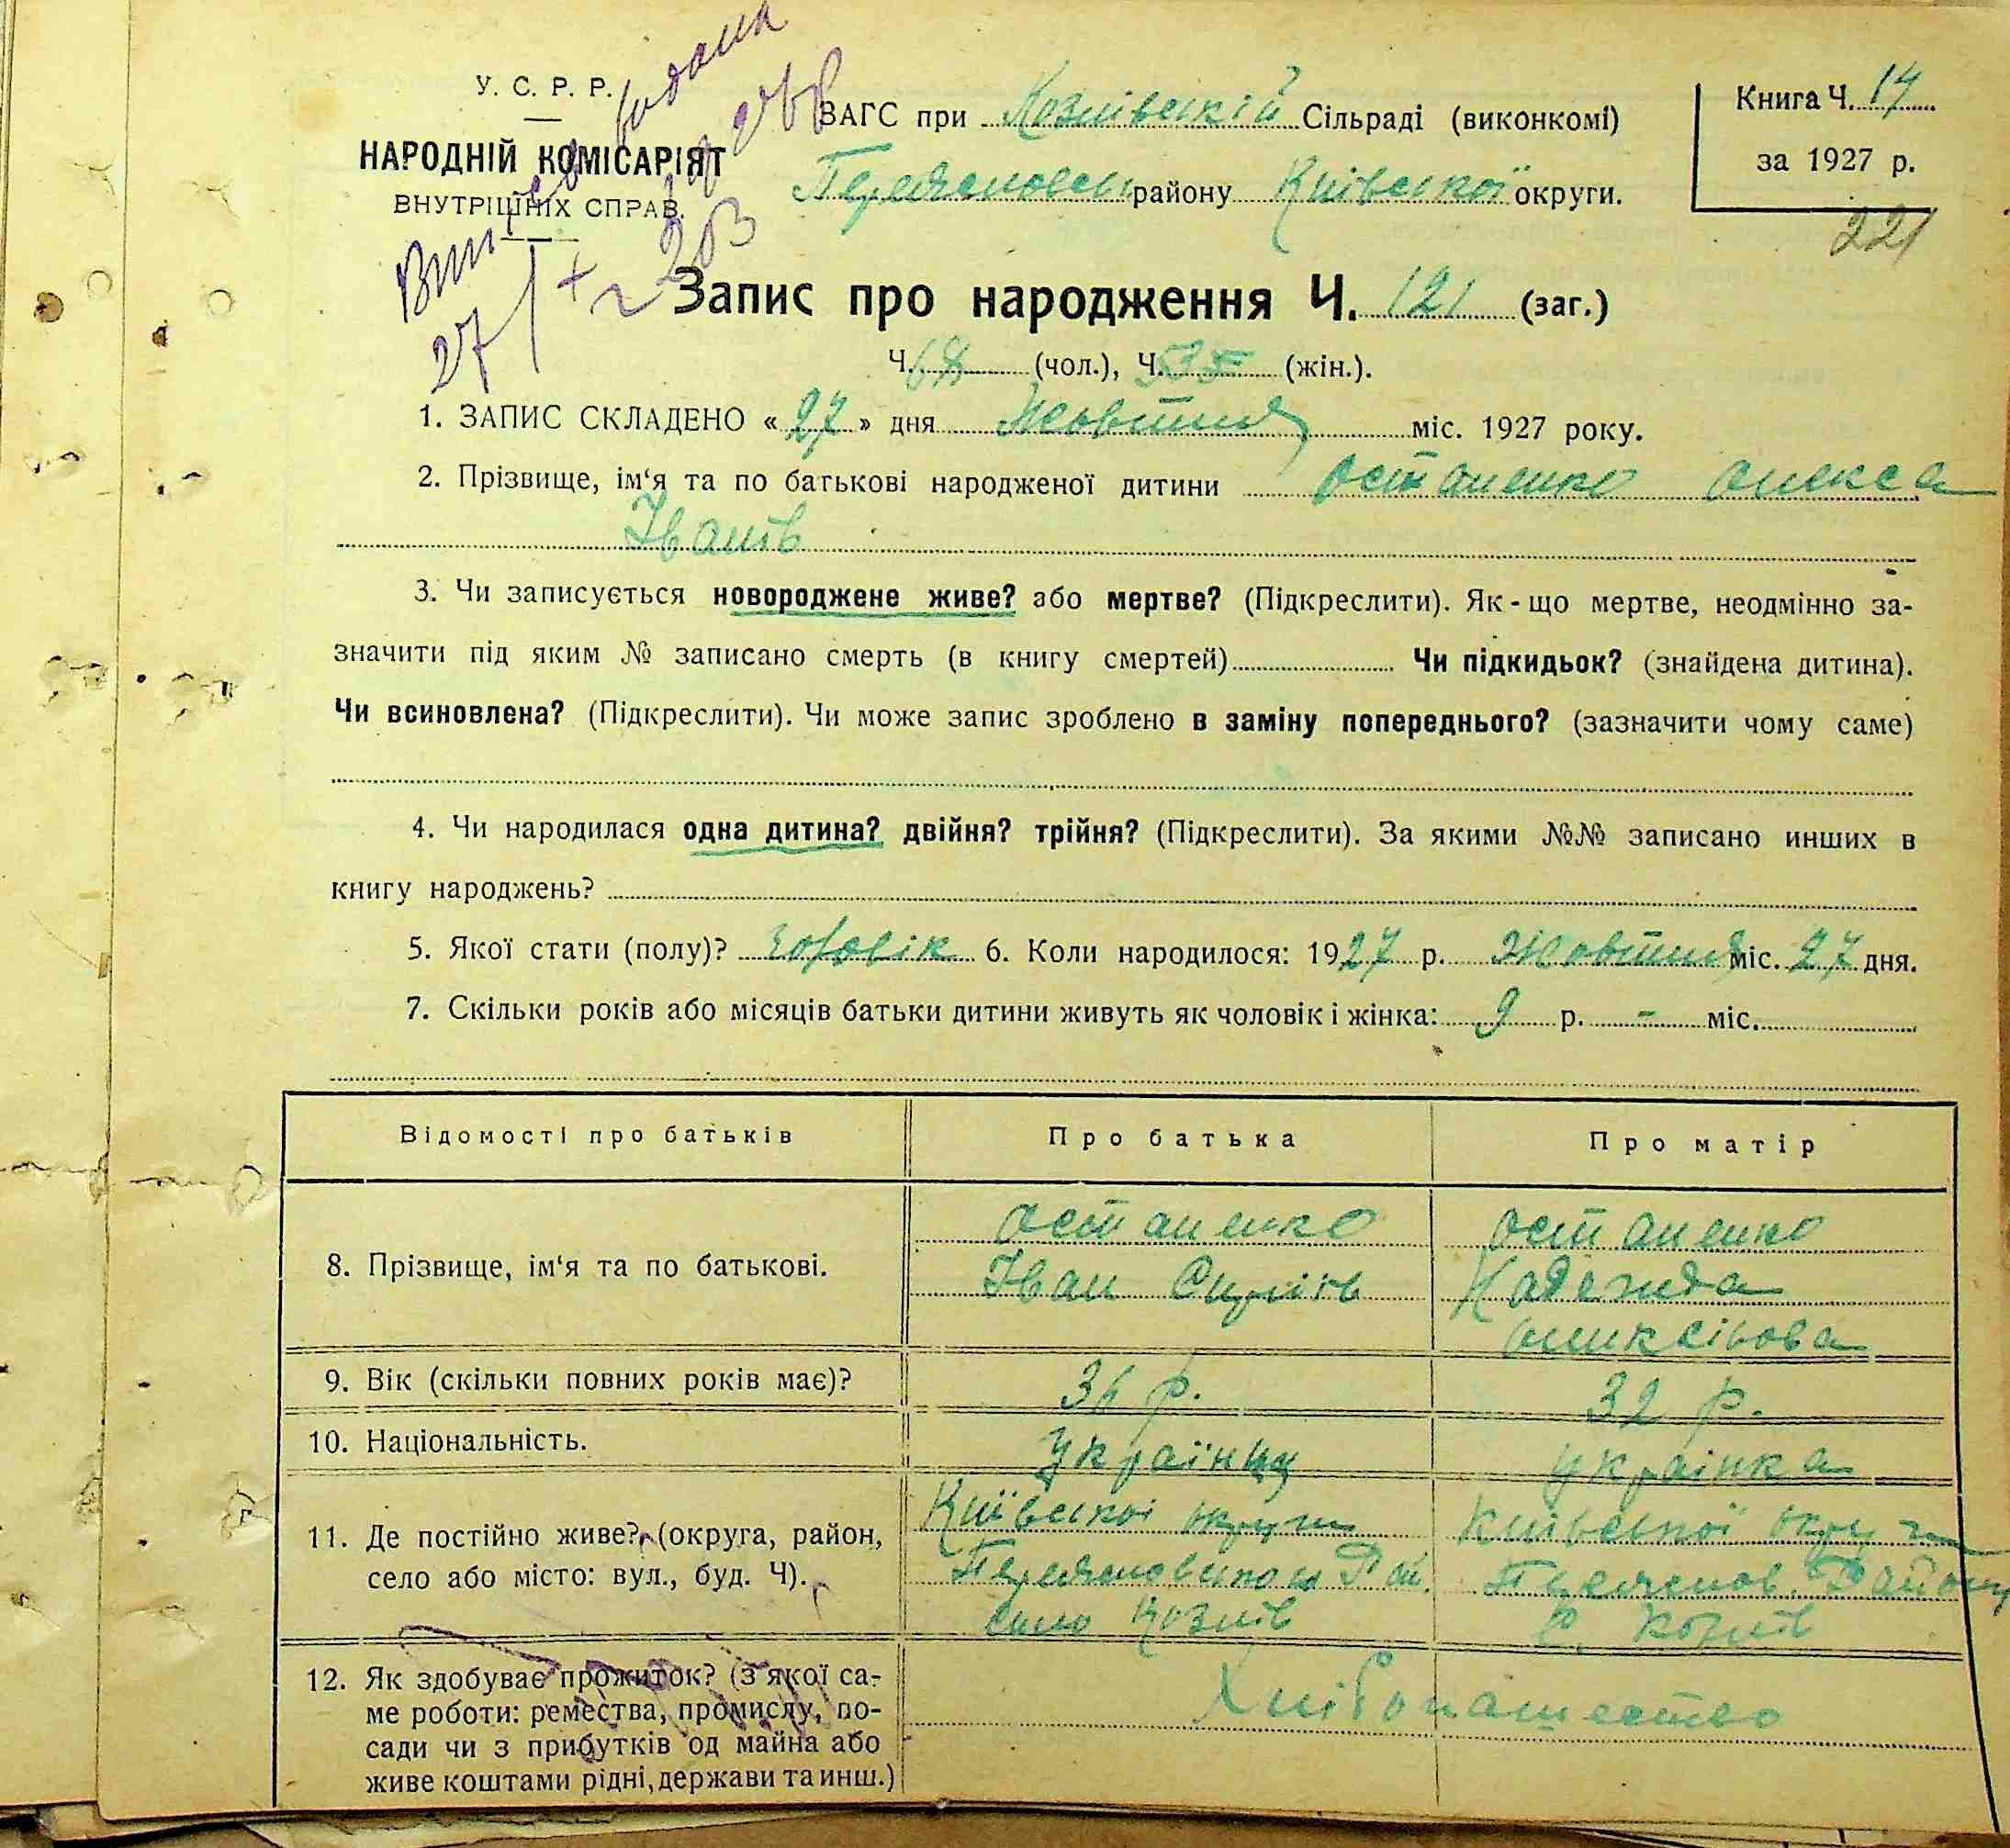 У. С. Р. Р.
НАРОДНІЙ КОМІСАРІЯТ
ВНУТРІШНІХ СПРАВ.
ЗАГС при Козлівській Сільраді (виконкомі)
району Київської округи.
Книга Ч. 14
за 1927 р.
221
Запис про народження Ч. 121 (заг.)
Ч. 68 (чол.), Ч. 53 (жін.).
1. ЗАПИС СКЛАДЕНО « 27 » дня Жовтня міс. 1927 року.
2. Прізвище, ім‘я та по батькові народженої дитини Остапенко Олекса
Іванів
3. Чи записується новороджене живе? або мертве? (Підкреслити). Як-що мертве, неодмінно за-
значити під яким № записано смерть (в книгу смертей) Чи підкидьок? (знайдена дитина).
Чи всиновлена? (Підкреслити). Чи може запис зроблено в заміну попереднього? (зазначити чому саме)
4. Чи народилася одна дитина? двійня? трійня? (Підкреслити). За якими №№ записано инших в
книгу народжень?
5. Якої стати (полу)? чоловік 6. Коли народилося: 1927 р. Жовтня міс. 27 дня.
7. Скільки років або місяців батьки дитини живуть як чоловік і жінка: 9 р. - міс.
Відомості про батьків Про батька Про матір
8. Прізвище, ім‘я та по батькові.
Остапенко
Іван
Остапенко
Надежда
9. Вік (скільки повних років має)? 36 р. 32 р.
10. Національність. українц українка
11. Де постійно живе? (округа, район,
село або місто: вул., буд. Ч).
Київської округи
село Козлів
Київської округи
Району
с. Козлів
12. Як здобуває прожиток? (з якої са-
ме роботи: ремества, промислу, по-
сади чи з прибутків од майна або
живе коштами рідні, держави та инш.)
Хлібопашество